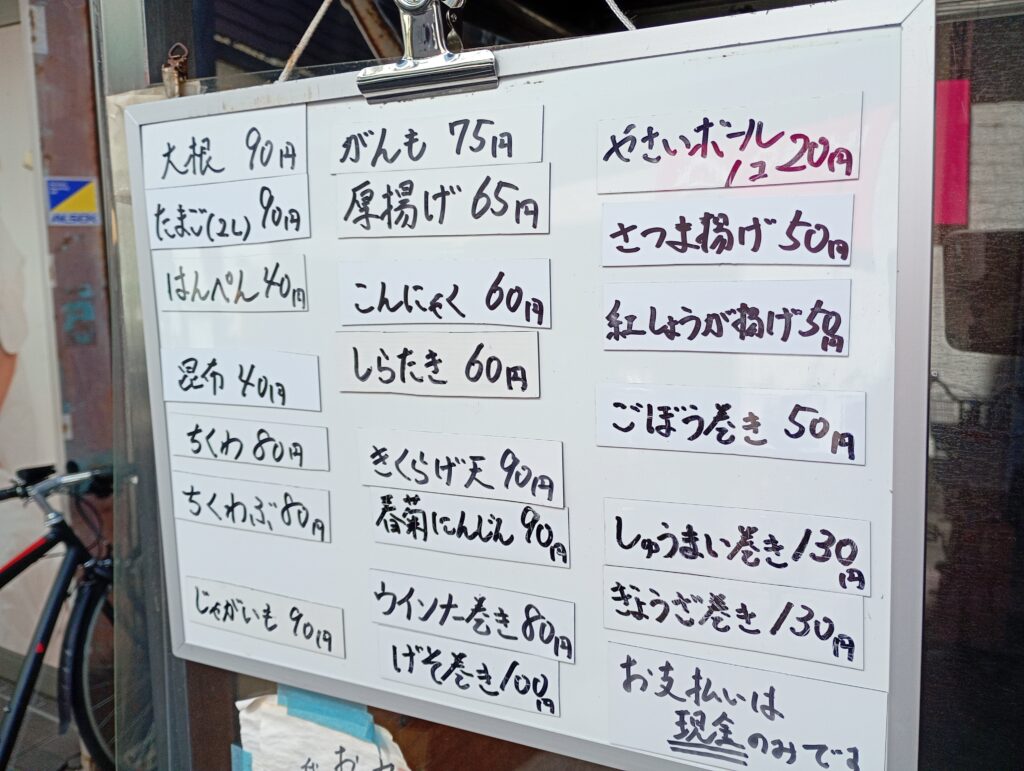 大根 90円
たまご(2L) 90円
はんぺん 40円
昆布 40円
ちくわ 80円
ちくわぶ 80円
じゃがいも 90円
がんも 75円
厚揚げ 65円
こんにゃく 60円
しらたき 60円
きくらげ天 90円
春菊にんじん 90円
ウインナー巻き 80円
げそ巻き 100円
やさいボール
1コ 20円
さつま揚げ 50円
紅しょうが揚げ 50円
ごぼう巻き 50円
しゅうまい巻き 130円
ぎょうざ巻き 130円
お支払いは
現金のみです